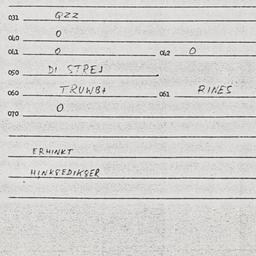 031 QZZ
040 0
041 0 042 0
050 DI STREJ
060 TRUWBA 061 RINES
070 0
ERHINKT
HINKGEDIKGER